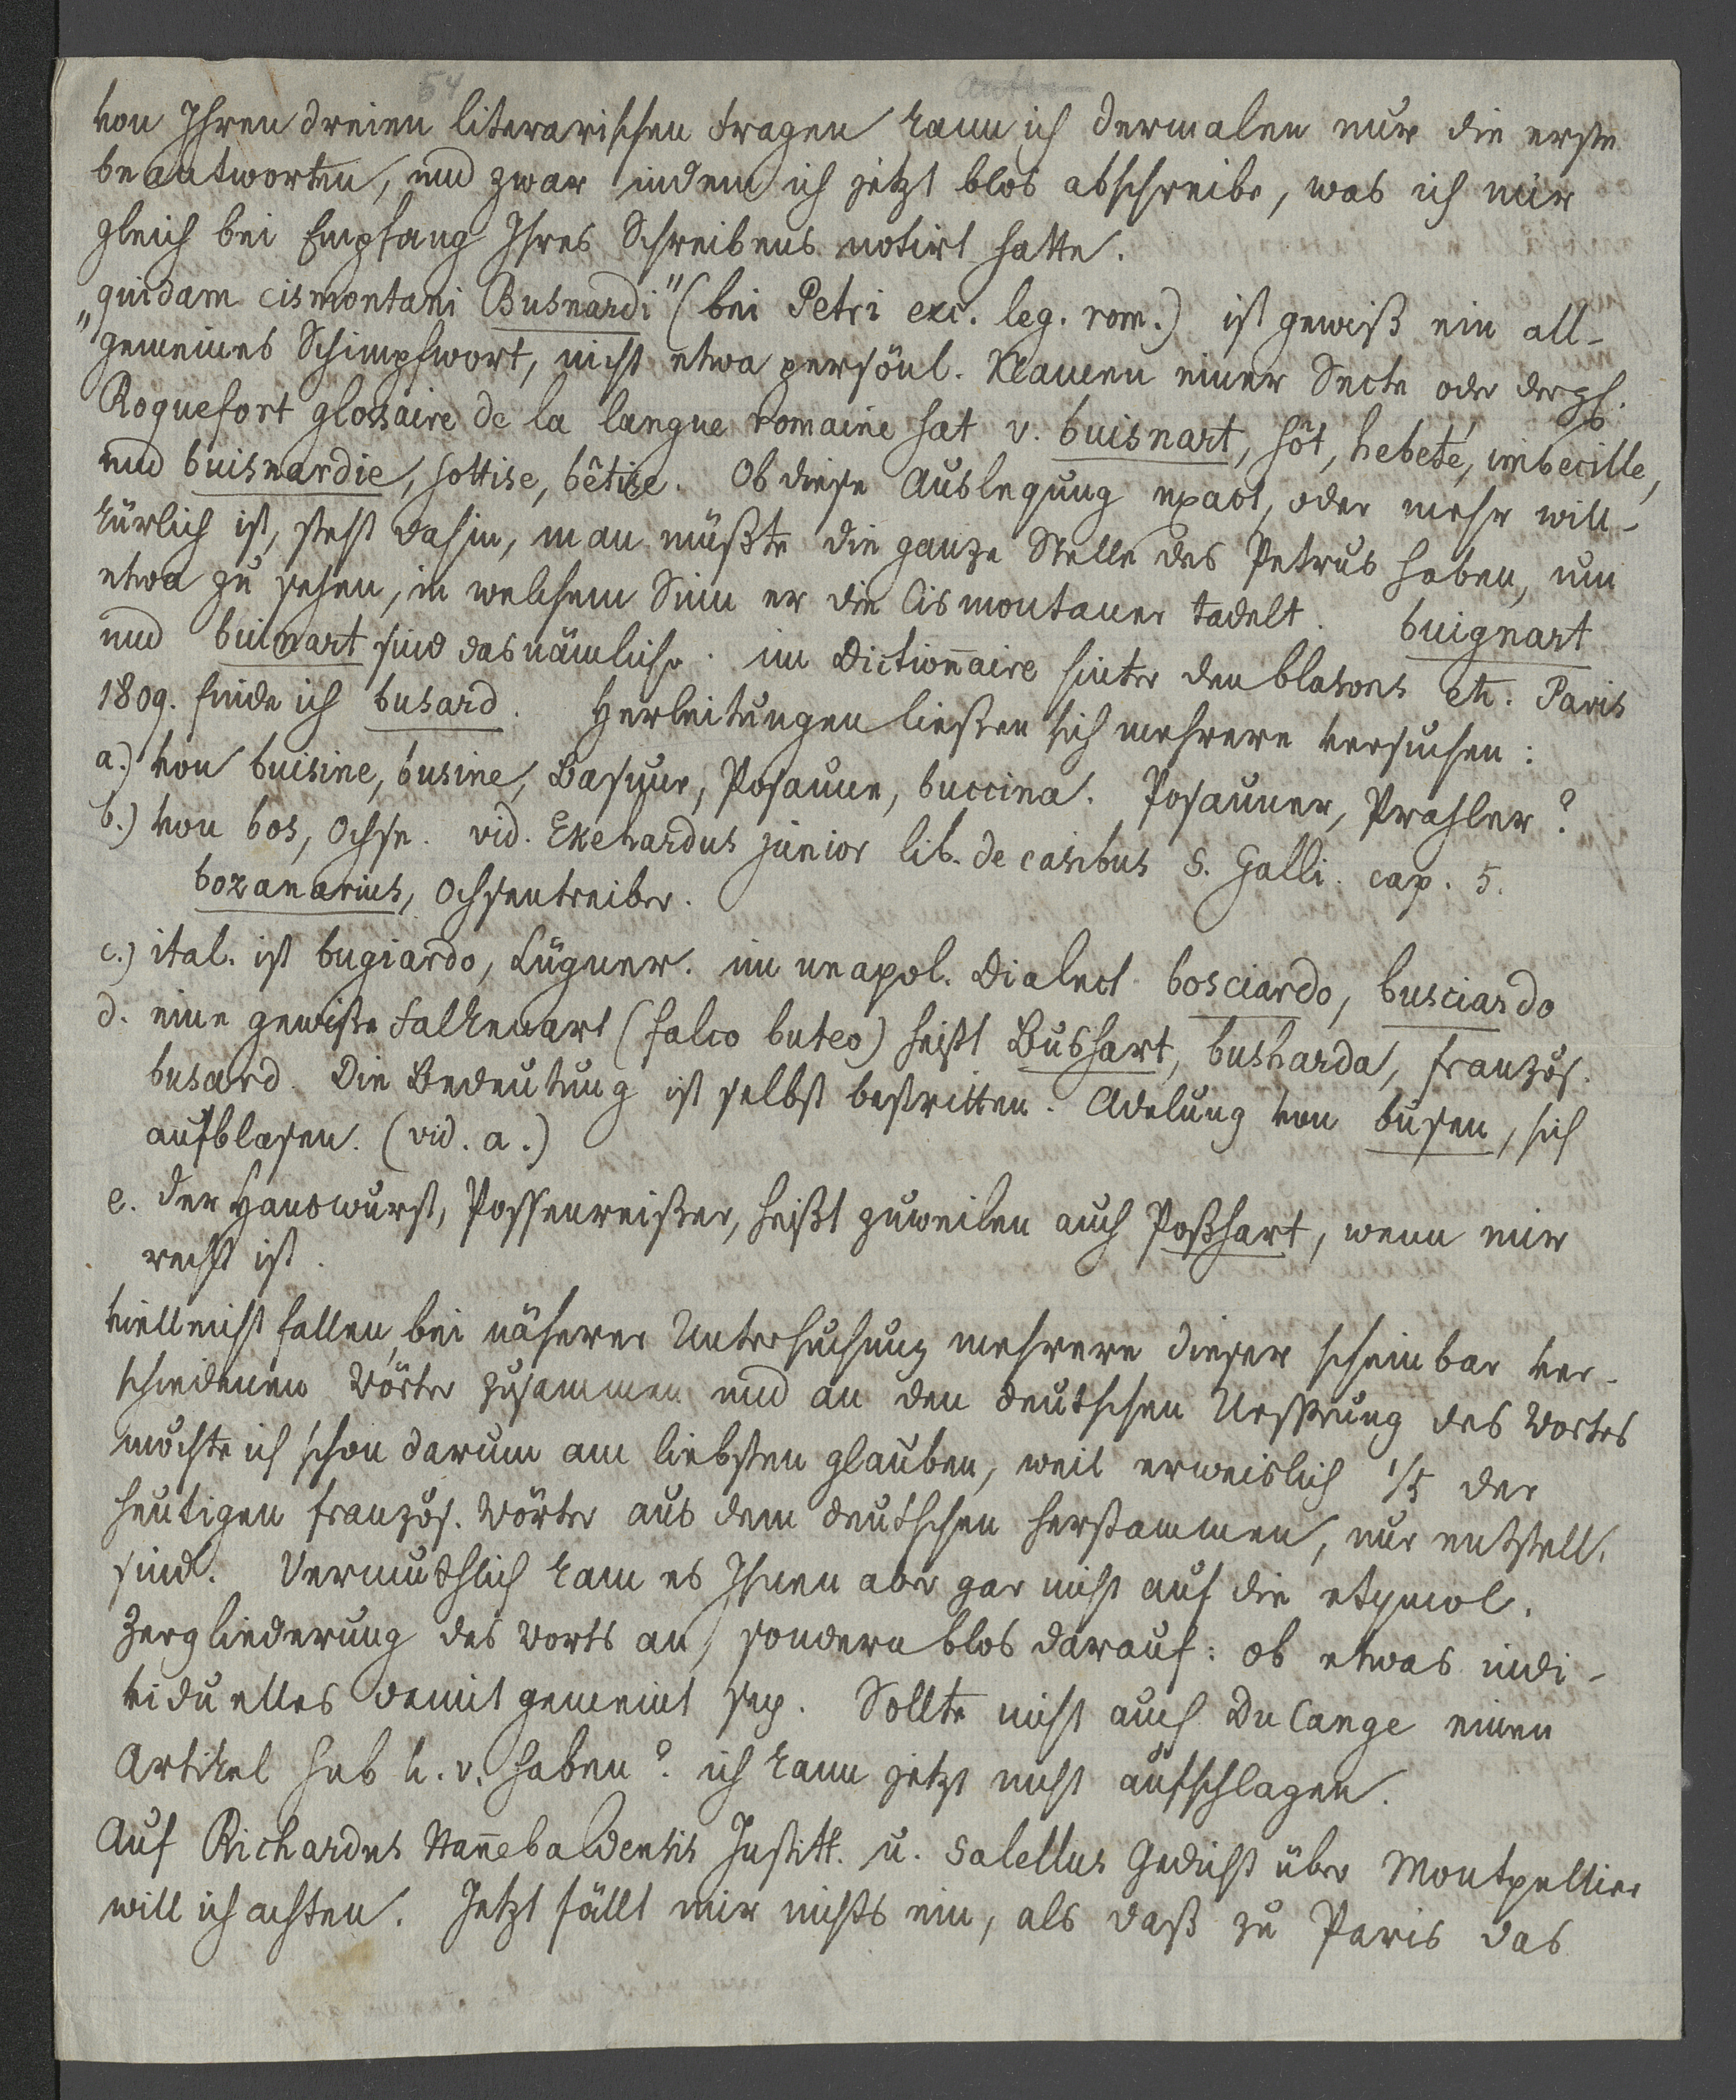 54
von Ihren dreien literarischen Fragen kann ich dermalen nur die erste
beantworten, und zwar indem ich jetzt blos abschreibe, was ich mir
gleich bei Empfang Ihres Schreibens notirt hatte.
„quidam cismontani Busnardi" (bei Petri exc. leg. rom.) ist gewiß ein all-
gemeines Schimpfwort, nicht etwa persönl. Namen einer Secte oder dergl.
Roquefort glossaire de la langue romaine hat v. buisnart, sôt, hebeté, imbecille,
und buisnardie, sottise, bêtise. Ob diese Auslegung exact, oder mehr will-
kürlich ist, steht dahin, man müßte die ganze Stelle des Petrus haben, um
etwa zu sehen, in welchem Sinn er die Cismontaner tadelt. buignart
und buinart sind das nämliche. im Dictionnaire hinter den blasons etc. Paris
1809. finde ich busard. Herleitungen ließen sich mehrere versuchen:
a.) von buisine, busine, Basune, Posaune, buccina. Posauner, Prahler?
b.) von bos, Ochse. vid. Ekehardus junior lib. de casibus S. Galli. cap. 5.
bozanarius, Ochsentreiber.
c.) ital. ist bugiardo, Lügner. im neapol. Dialect bosciardo, busciardo
d. eine gewisse Falkenart (falco buteo) heißt Bushart, busharda, französ.
busard. Die Bedeutung ist selbst bestritten. Adelung von busen, sich
aufblasen. (vid. a.)
e. der Hanswurst, Possenreißer, heißt zuweilen auch Poßhart, wenn mir
recht ist.
vielleicht fallen bei näherer Untersuchung mehrere dieser scheinbar ver-
schiedenen Wörter zusammen und an den deutschen Ursprung des Wortes
möchte ich schon darum am liebsten glauben, weil erweislich 1/5 der
heutigen französ. Wörter aus dem deutschen herstammen, nur entstellt
sind. Vermuthlich kam es Ihnen aber gar nicht auf die etymol.
Zergliederung des Worts an, sondern blos darauf: ob etwas indi-
viduelles damit gemeint sey. Sollte nicht auch Du Cange einen
Artikel sub h. v. haben? ich kann jetzt nicht aufschlagen.
Auf Richardus Institt. u. Salellus Gedicht über Montpellier
will ich achten. Jetzt fällt mir nichts ein, als daß zu Paris das